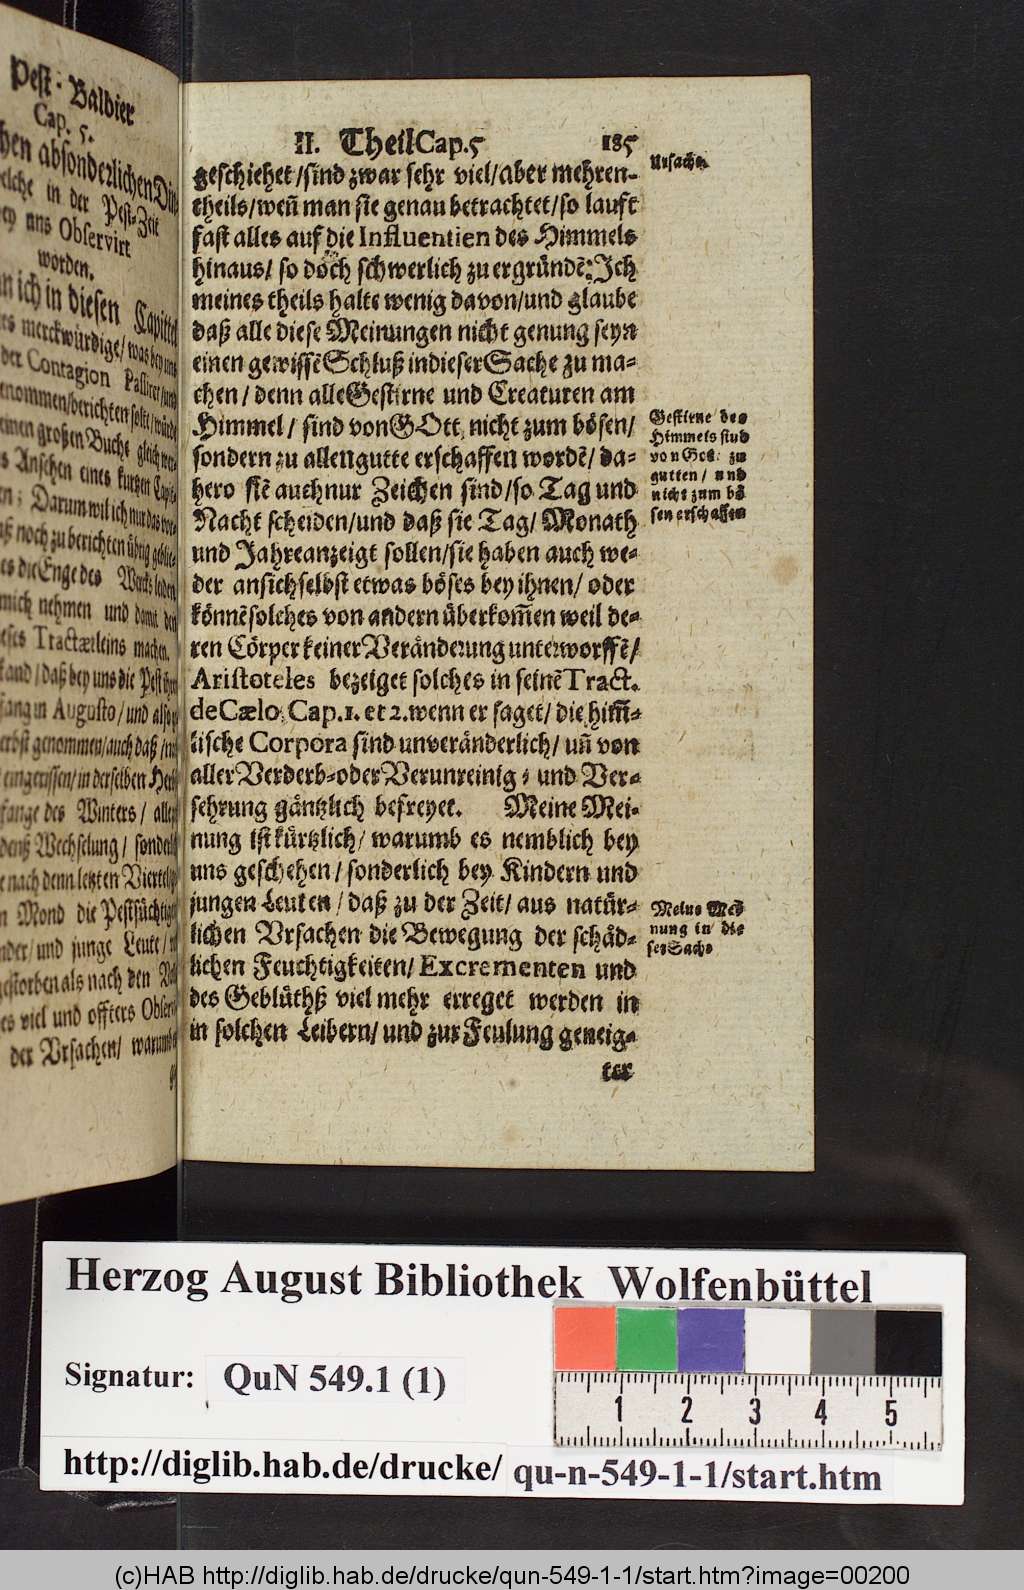 Pest-Baldier
Cap. 5.
absonderlichen
welche in der Pest-Zeit
bey uns Observirt
worden.
ich in diesen Capittel
merckwürdige/ was bey uns
der Contagion Passiret/
genommen/berichten solte/würde
einen großen Buche gleich
Ansehen eines kurtzen
Darum wil ich nur das
noch zu berichten übrig
die Enge des Wercks leiden
mich nehmen und damit den
Tractætleins machen.
daß bey uns die Pest
Augusto/und also
genommen/auch daß/
eingerissen/in derselben
des Winters/ allen
Wechselung/ sonderl
nach denn letzten Viertel
Mond die Pestsüchtig
und junge Leute/
gestorben als nach den
viel und offters Obser
der Vrsachen/ warumb
II. Theil Cap. 5 185
geschiehet/sind zwar sehr viel/aber mehren-
theils/weñ man sie genau betrachtet/so laufft
fast alles auf die Influentien des Himmels
hinaus/ so doch schwerlich zu ergründē: Jch
meines theils halte wenig davon/und glaube
daß alle diese Meinungen nicht genung seyn
einen gewissē Schluß in dieser Sache zu ma-
chen/ denn alle Gestirne und Creaturen am
Himmel/ sind von GOtt nicht zum bösen/
sondern zu allen gutte erschaffen wordē/ da-
hero siē auch nur Zeichen sind/so Tag und
Nacht scheiden/und daß sie Tag/ Monath
und Jahre anzeigt sollen/sie haben auch we-
der an sich selbst etwas böses bey ihnen/ oder
könnē solches von andern überkom̃en weil de-
ren Cörper keiner Veränderung unterworffē/
Aristoteles bezeiget solches in seinē Tract.
de Cælo, Cap. 1. et 2. wenn er saget/ die him̃-
lische Corpora sind unveränderlich/ uñ von
aller Verderb- oder Verunreinig- und Ver-
sehrung gäntzlich befreyet. Meine Mei-
nung ist kürtzlich/ warumb es nemblich bey
uns geschehen/ sonderlich bey Kindern und
jungen Leuten/ daß zu der Zeit/ aus natür-
lichen Vrsachen die Bewegung der schäd-
lichen Feuchtigkeiten/ Excrementen und
des Geblüthß viel mehr erreget werden in
in solchen Leibern/ und zur Feulung geneig-
ter
Ursache.
Gestirne des
Himmels sind
von Got zu
gutten/ und
nicht zum bö
sen erschaffen
Meine Mei
nung in die
ser Sache
Herzog August Bibliothek Wolfenbüttel
Signatur: QuN 549.1 (1)
1 2 3 4 5
http://diglib.hab.de/drucke/ qu-n-549-1-1/start.htm
(c)HAB http://diglib.hab.de/drucke/qun-549-1-1/start.htm?image=00200